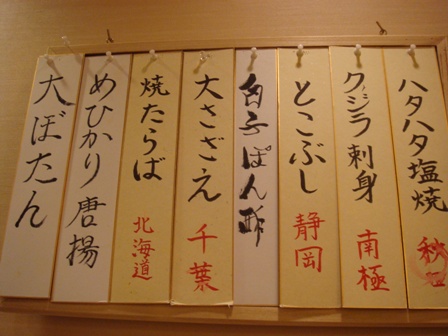 ハタハタ塩焼 秋田
クジラ刺身 南極
とこぶし 静岡
白子ぽん酢
大さざえ 千葉
焼たらば 北海道
めひかり唐揚
大ぼたん